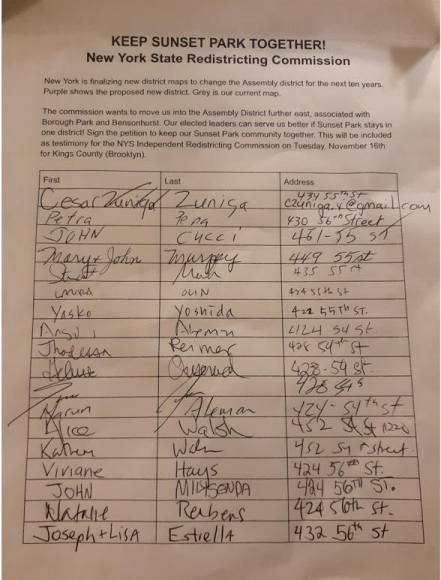 KEEP SUNSET PARK TOGETHER!
New York State Redistricting Commission
New York is finalizing new district maps to change the Assembly district for the next ten years.
Purple shows the proposed new district. Grey is our current map.
The commission wants to move us into the Assembly District further east, associated with
Borough Park and Bensonhurst. Our elected leaders can serve us better if Sunset Park stays in
one district! Sign the petition to keep our Sunset Park community together. This will be included
as testimony for the NYS Independent Redistricting Commission on Tuesday, November 16th
for Kings County (Brooklyn).
First Last Address
434 55th St
Cesar Zuniga Zuniga czuniga.y@gmail.com
Petra Pena 430 56th Street
JOHN Cucci 461-55 ST
Mary + John Murphy 449 55 st
435 55 st
OLIN
Yasko Yoshida 422 55TH ST.
Aleman 424 54 st
428 54th st
428-54 st
428
Aleman 424-54th st
Alice Walsh 452
Kathen 452 street
Viviane Hays 424 56th St.
JOHN 424 56TH ST.
Natalie Reubens 424 56th St.
Joseph + LISA Estrella 432 56th st